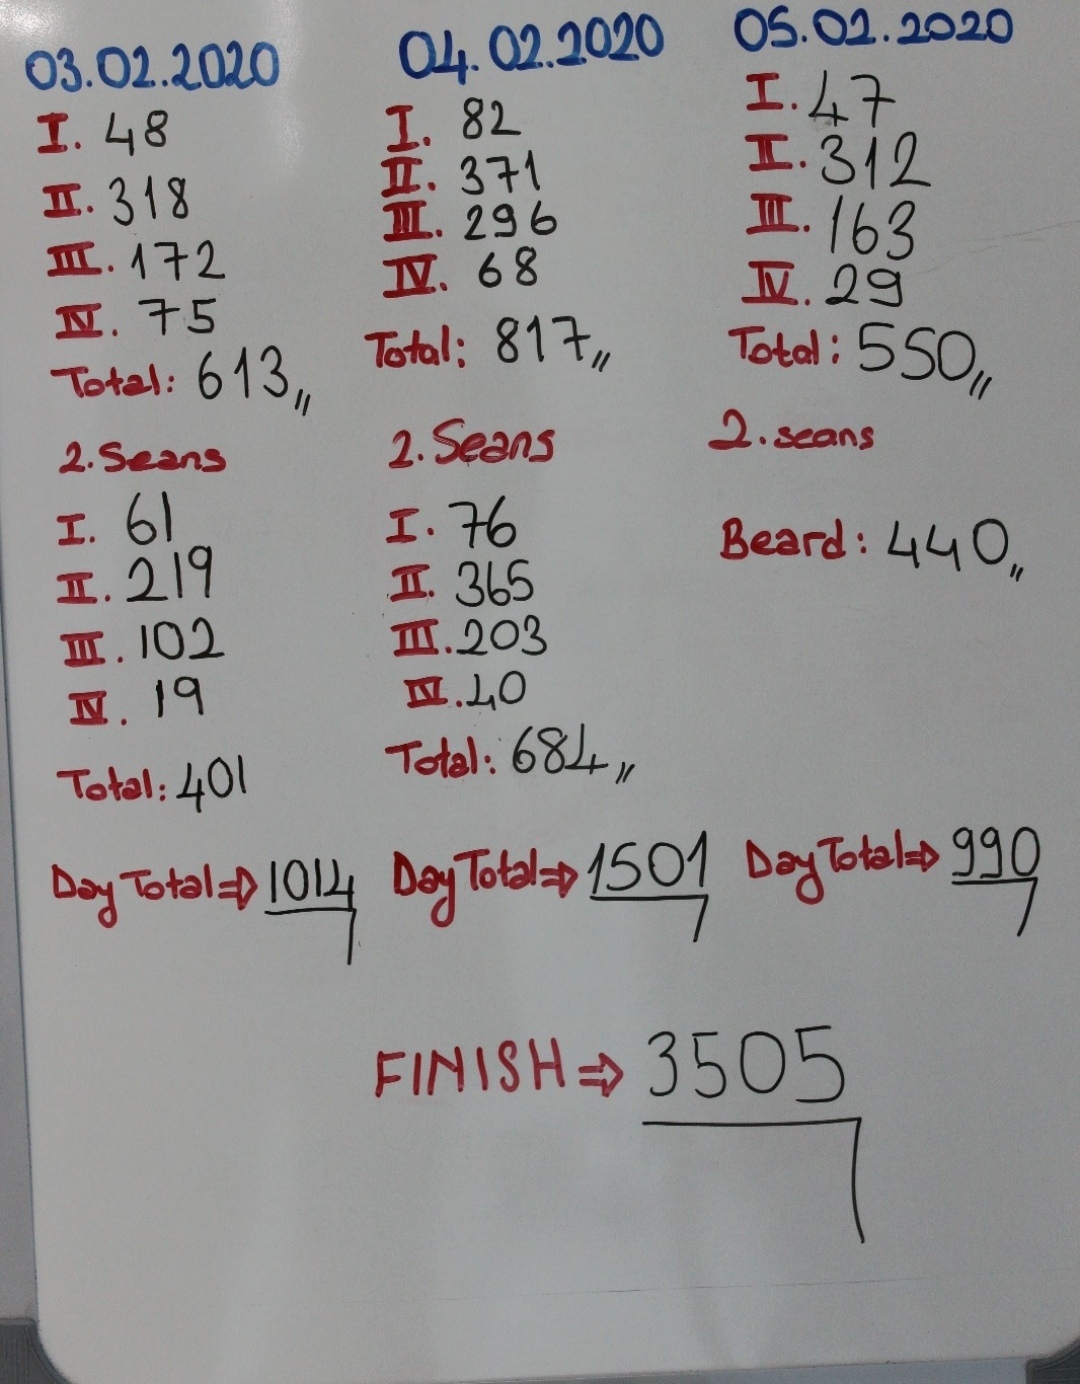 03.02.2020
I. 48
II. 318
III. 172
IV. 75
Total: 613,,
2. Seans
I. 61
II. 219
III. 102
IV. 19
Total: 401
Day Total ⇒ 1014
04.02.2020
I. 82
II. 371
III. 296
IV. 68
Total: 817,,
2. Seans
I. 76
II. 365
III. 203
IV. 40
Total: 684,,
Day Total ⇒ 1501
05.02.2020
I. 47
II. 312
III. 163
IV. 29
Total: 550,,
2. seans
Beard: 440,,
Day Total ⇒ 990
FINISH ⇒ 3505